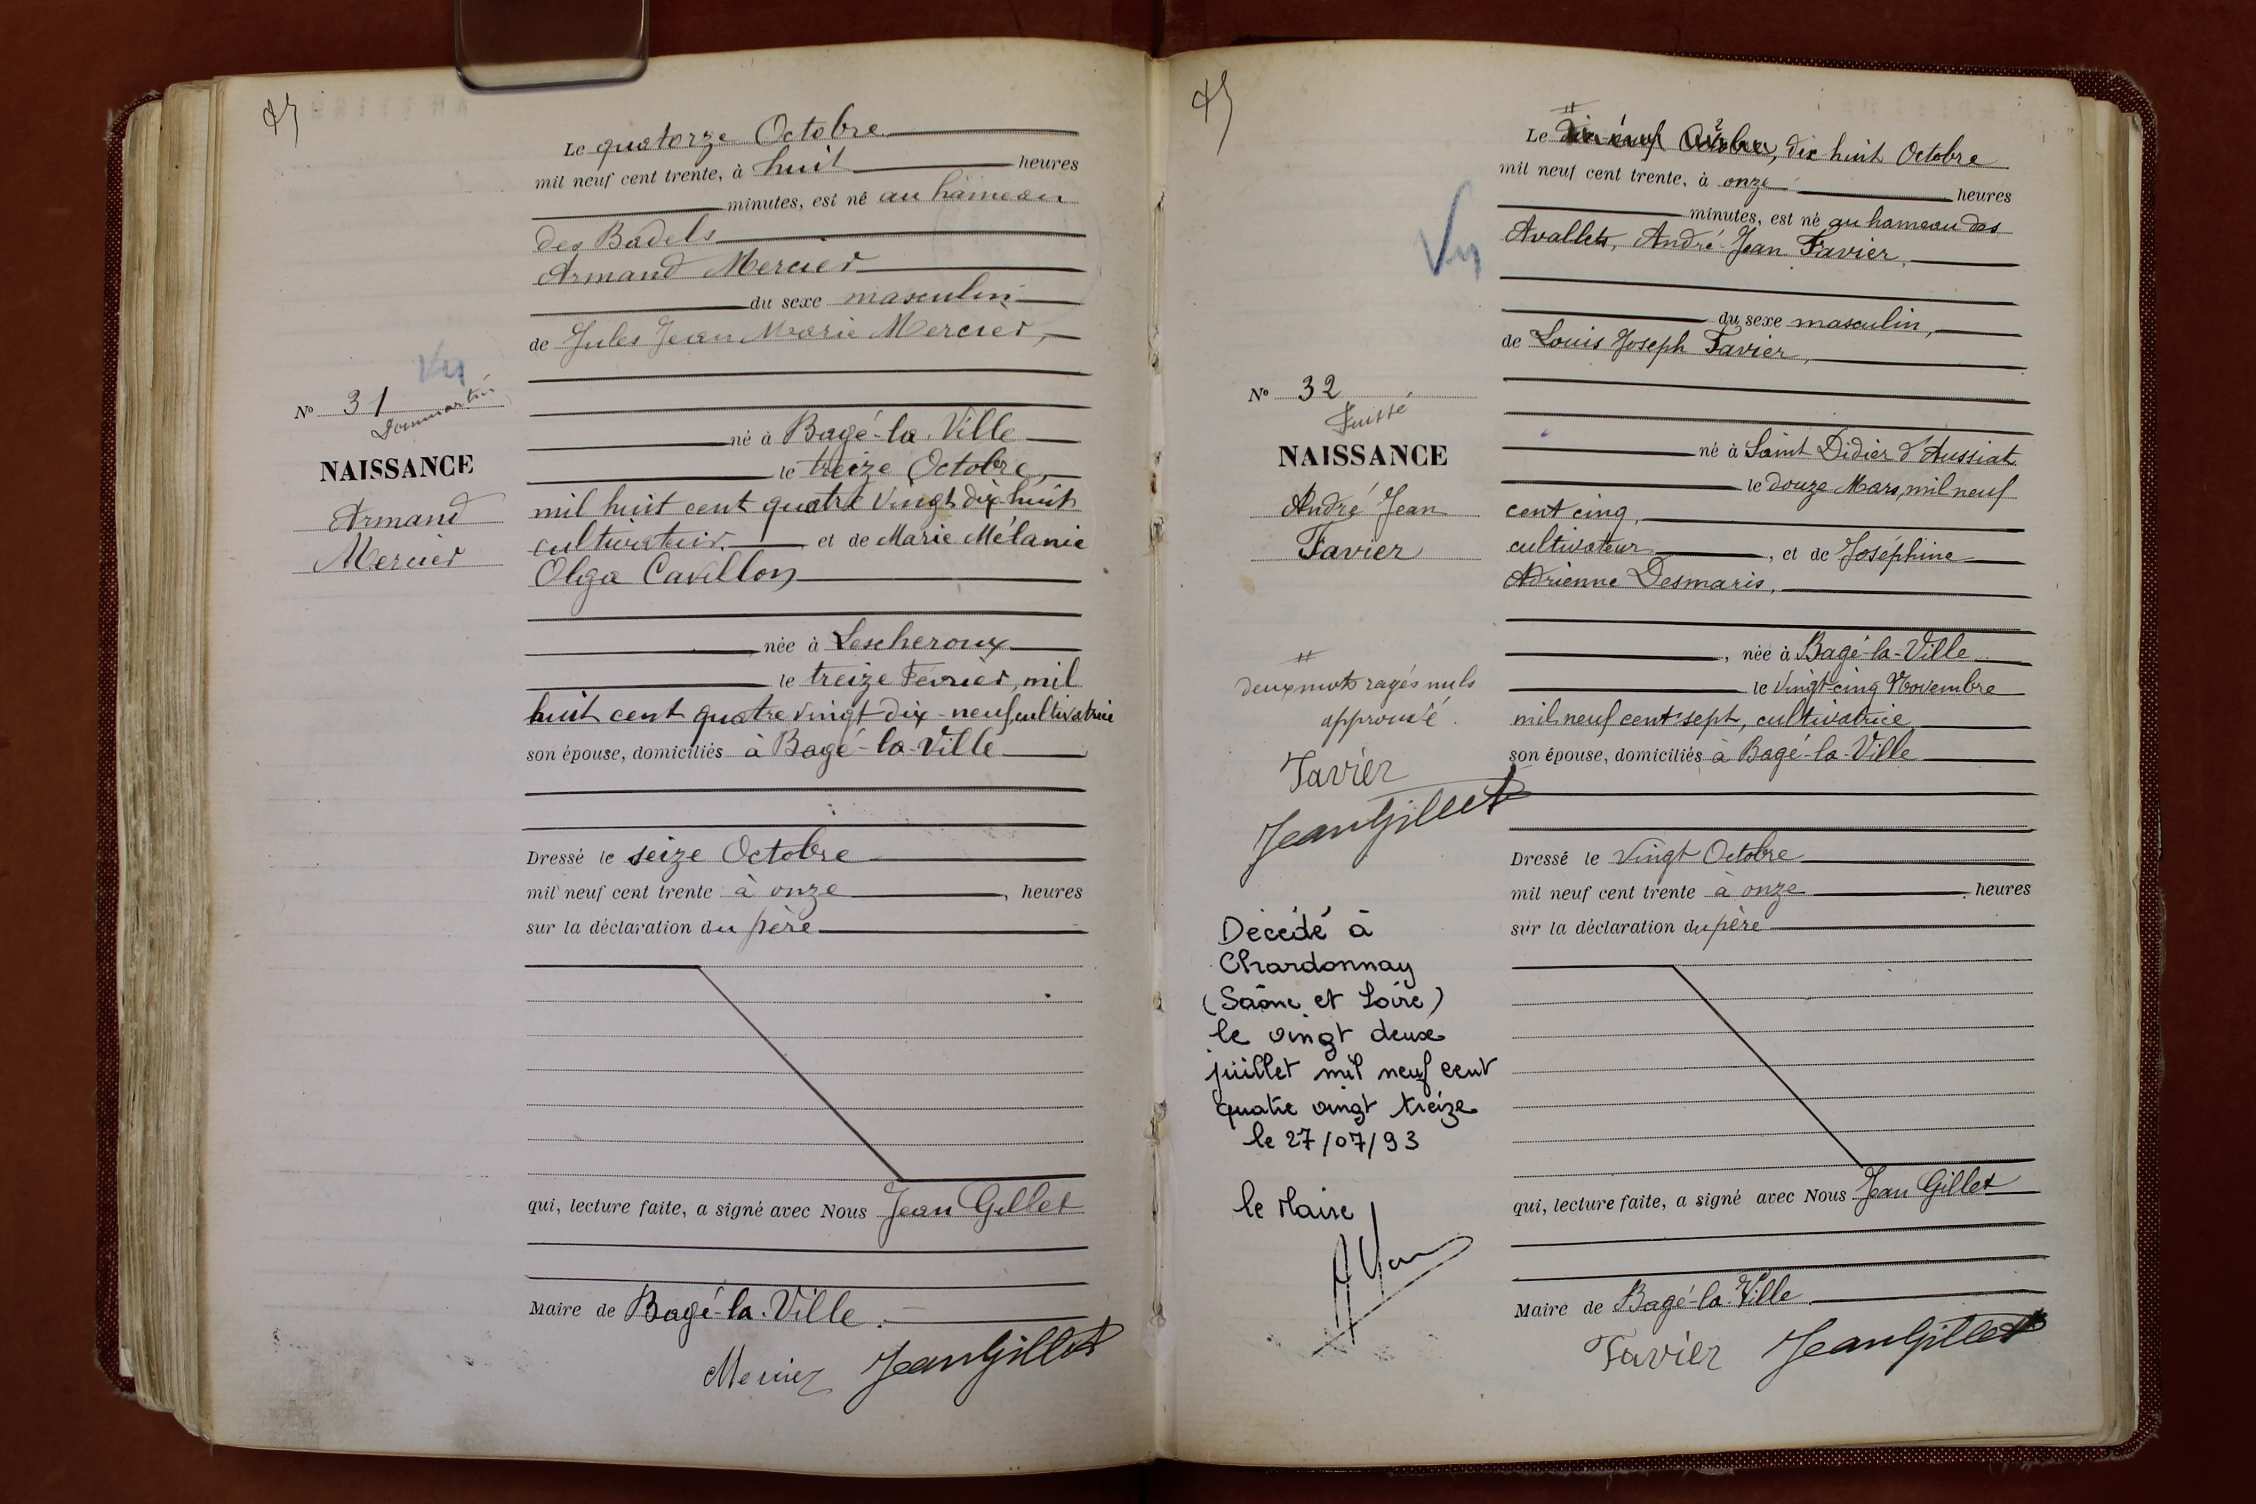 Le quatorze Octobre
mil neuf cent trente, à huit heures
minutes, est né au hameau
des Badels
Armand Mercier
du sexe masculin
de Jules Jean Marie Mercier,
Vu
N° 31
Dommartin
né à Bagé-la-Ville
le treize Octobre,
NAISSANCE
Armand
Mercier
mil huit cent quatre vingt dix-huit
cultivateur, et de Marie Mélanie
Olga Cavillon
née à Lescheroux
le treize Février, mil
huit cent quatre vingt-dix-neuf, cultivatrice
son épouse, domiciliés à Bagé-la-Ville
Dressé le seize Octobre
mil neuf cent trente à onze, heures
sur la déclaration du père
qui, lecture faite, a signé avec Nous Jean Gillet
Maire de Bagé-la-Ville.
Mercier Jean Gillet
Le dix-neuf Octobre, dix huit Octobre
mil neuf cent trente, à onze heures
minutes, est né au hameau des
Avallets, André Jean Favier,
Vu
du sexe masculin,
de Louis Joseph Favier,
N° 32
né à Saint Didier d'Aussiat
le douze Mars, mil neuf
NAISSANCE
André Jean
Favier
cent cinq,
cultivateur, et de Joséphine
Adrienne Desmaris,
, née à Bagé-la-Ville
le vingt-cinq Novembre
mil neuf cent sept, cultivatrice
son épouse, domiciliés à Bagé-la-Ville
deux mots rayés nuls
approuvé.
Favier
Jean Gillet
Dressé le vingt Octobre
mil neuf cent trente à onze heures
sur la déclaration du père
Décédé à
Chardonnay
(Saône et Loire)
le vingt deux
juillet mil neuf cent
quatre vingt treize
le 27/07/93
le Maire
qui, lecture faite, a signé avec Nous Jean Gillet
Maire de Bagé-la-Ville
Favier Jean Gillet